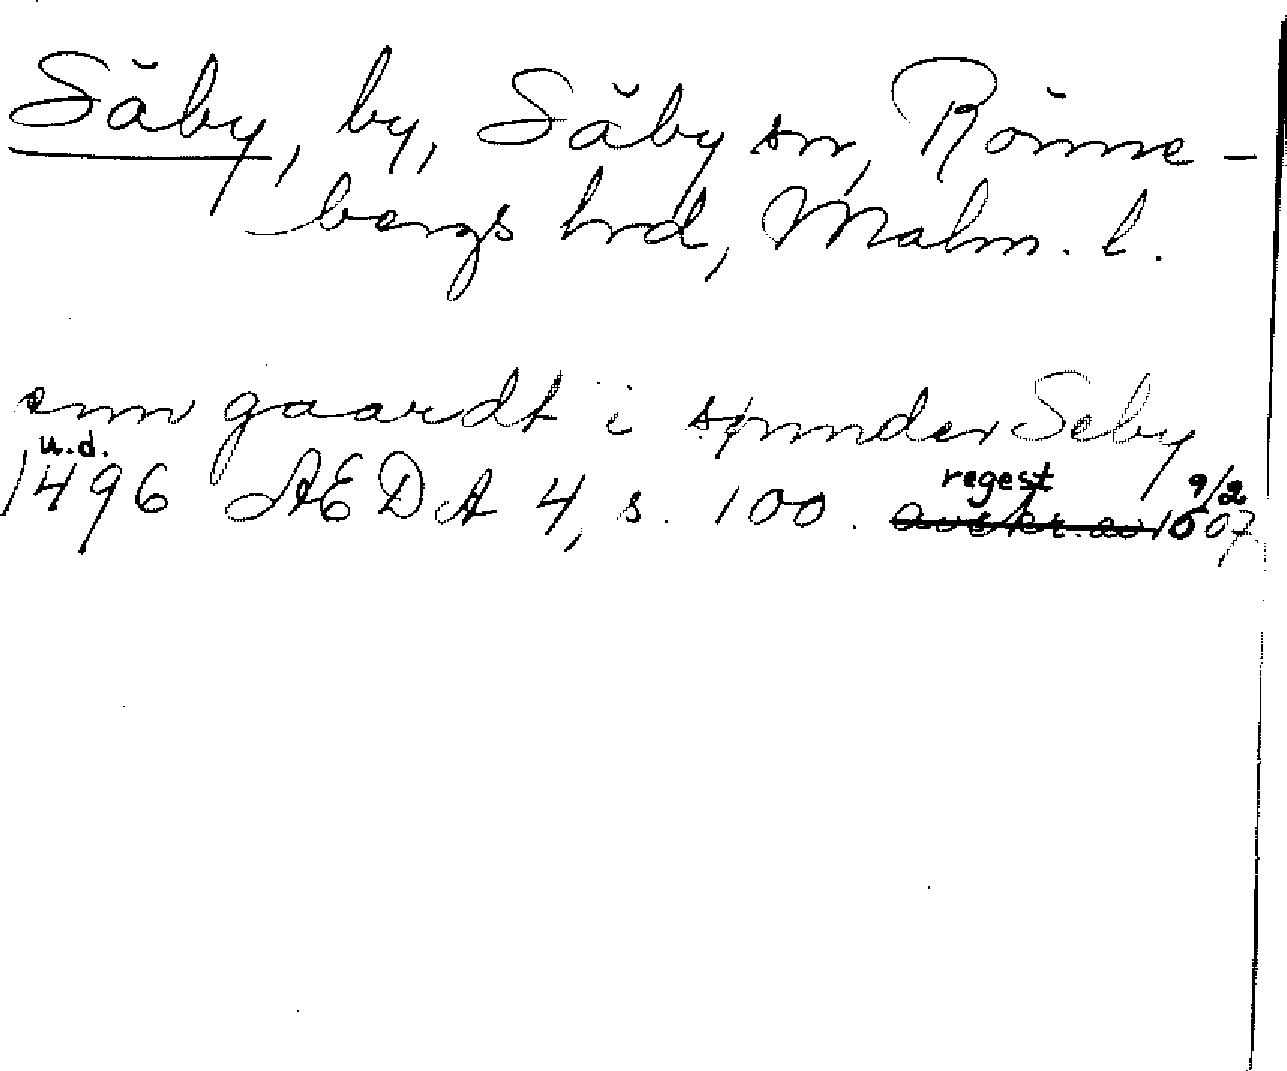 Säby, by, Säby sn, Rönne-
bergs hrd, Malm. l.
enn gaardt i sønder Seby
u.d. regest 9/2
1496 AEDA 4, s. 100. avskr. av 1507